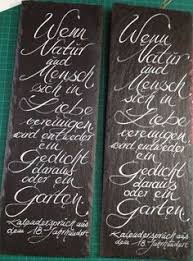 Wenn
Natur
und
Mensch
sich in
Liebe
vereinigen
wird entweder
ein
Gedicht
daraus
oder ein
Garten.
Kalenderspruch aus
dem 18. Jahrhundert
Wenn
Natur
und
Mensch
sich in
Liebe
vereinigen
wird entweder
ein
Gedicht
daraus
oder ein
Garten.
Kalenderspruch aus
dem 18. Jahrhundert